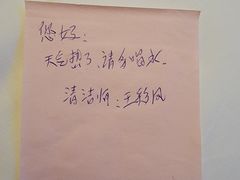 您好：
天气热了，请多喝水.
清洁师：王彩凤